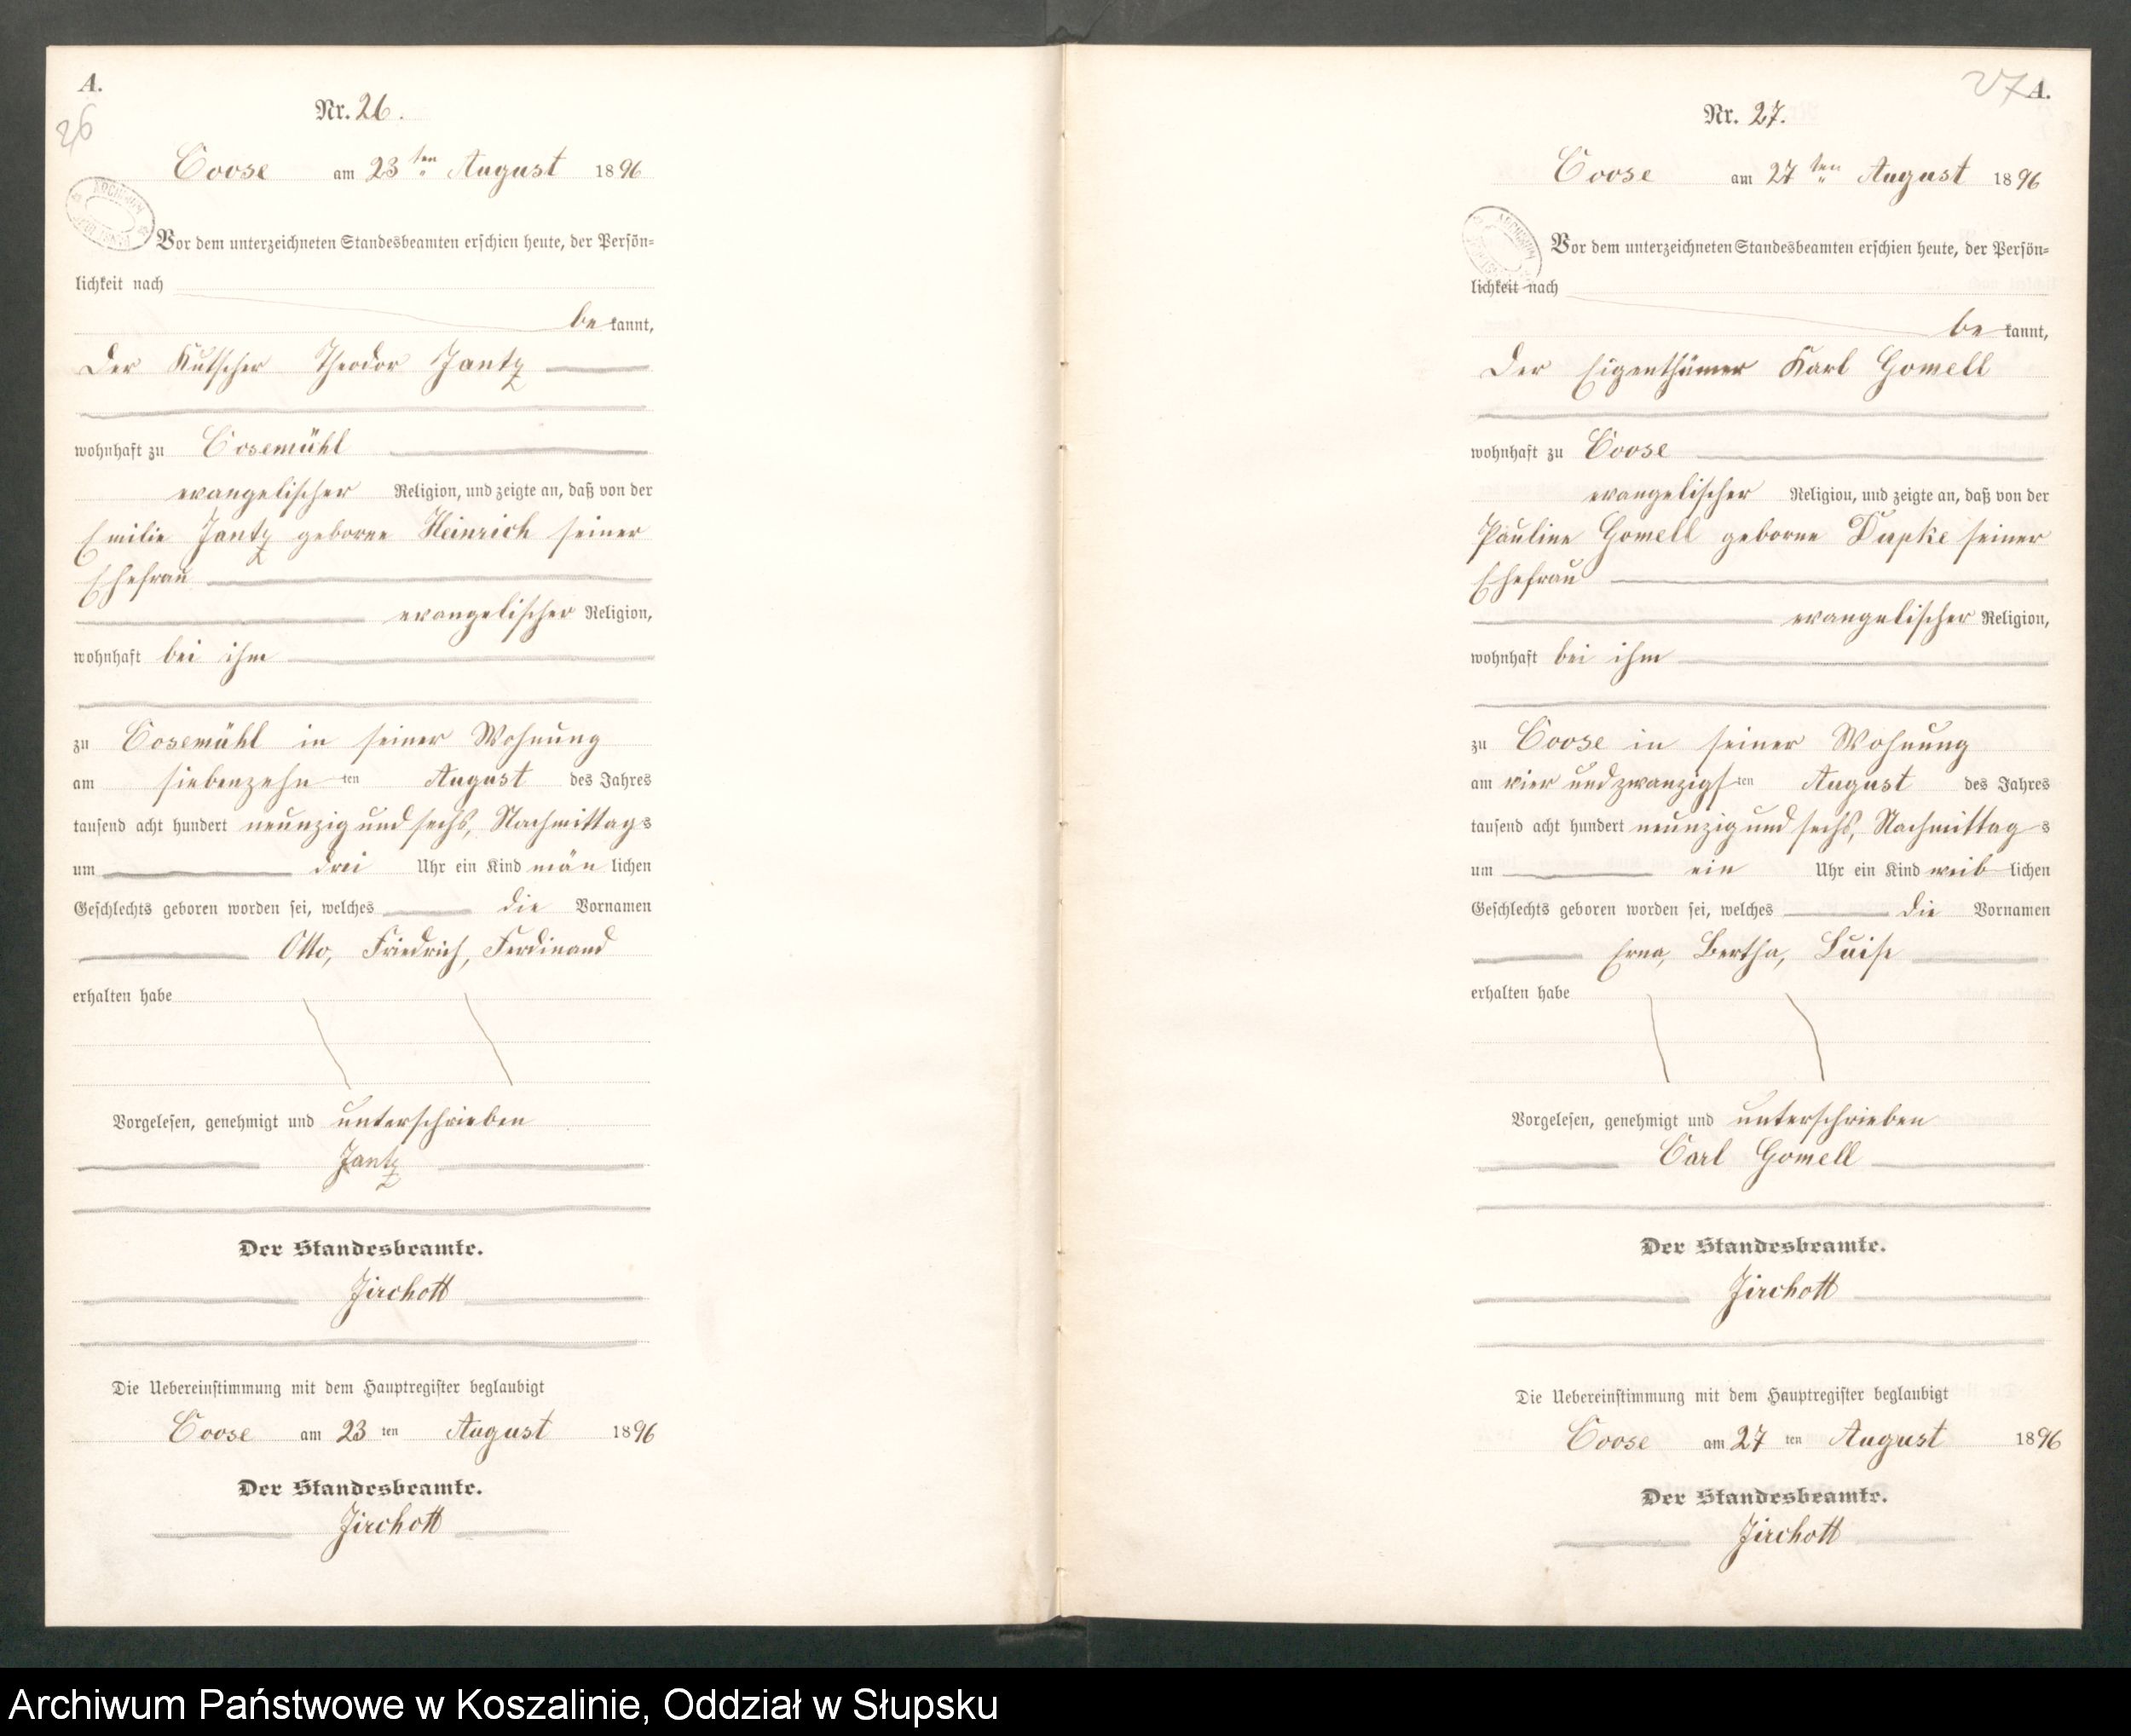 A.
26
Nr. 26.
Coose am 23 ten August 1896
Vor dem unterzeichneten Standesbeamten erschien heute, der Persön=
lichkeit nach
be kannt,
Der Kutscher Theodor Jantz
wohnhaft zu Cosemühl
evangelischer Religion, und zeigte an, daß von der
Emilie Jantz geborne Heinrich seiner
Ehefrau
evangelischer Religion,
wohnhaft bei ihm
zu Cosemühl in seiner Wohnung
am siebenzehn ten August des Jahres
tausend acht hundert neunzig und sechs, Nachmittags
um drei Uhr ein Kind män lichen
Geschlechts geboren worden sei, welches die Vornamen
Otto, Friedrich, Ferdinand
erhalten habe
Vorgelesen, genehmigt und unterschrieben
Jantz
Der Standesbeamte.
Jirchott
Die Uebereinstimmung mit dem Hauptregister beglaubigt
Coose am 23 ten August 1896
Der Standesbeamte.
Jirchott
27
A.
Nr. 27.
Coose am 27 ten August 1896
Vor dem unterzeichneten Standesbeamten erschien heute, der Persön=
lichkeit nach
be kannt,
Der Eigenthümer Karl Gomell
wohnhaft zu Coose
evangelischer Religion, und zeigte an, daß von der
Pauline Gomell geborne Dupke seiner
Ehefrau
evangelischer Religion,
wohnhaft bei ihm
zu Coose in seiner Wohnung
am vier und zwanzigs ten August des Jahres
tausend acht hundert neunzig und sechs, Nachmittag s
um ein Uhr ein Kind weib lichen
Geschlechts geboren worden sei, welches die Vornamen
Erna, Bertha, Luise
erhalten habe
Vorgelesen, genehmigt und unterschrieben
Carl Gomell
Der Standesbeamte.
Jirchott
Die Uebereinstimmung mit dem Hauptregister beglaubigt
Coose am 27 ten August 1896
Der Standesbeamte.
Jirchott
Archiwum Państwowe w Koszalinie, Oddział w Słupsku